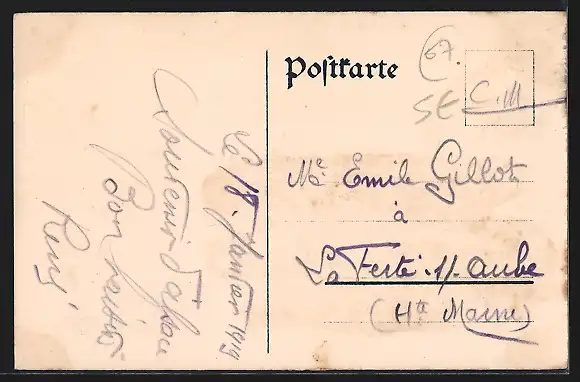 Le 18. Janvier 1919
Souvenir d'Alsace
Bon
René
Postkarte
67.
SE
C.M
Mr Emile Gillot
à
La Ferté-s/-Aube
(Hte Marne)